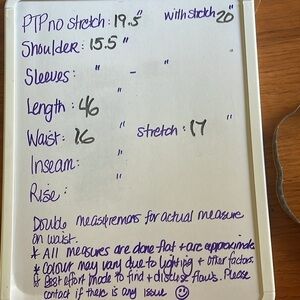 PTP no stretch: 19.5" with stretch 20"
Shoulder: 15.5"
Sleeves: " - "
Length: 46 "
Waist: 16 " stretch: 17 "
Inseam: "
Rise: "
Double measuremens for actual measure
on waist.
* All measures are done flat + are approximate.
* Colour may vary due to lighting + other factors.
* Best effort made to find + disclose flaws. Please
contact if there is any issue ☺